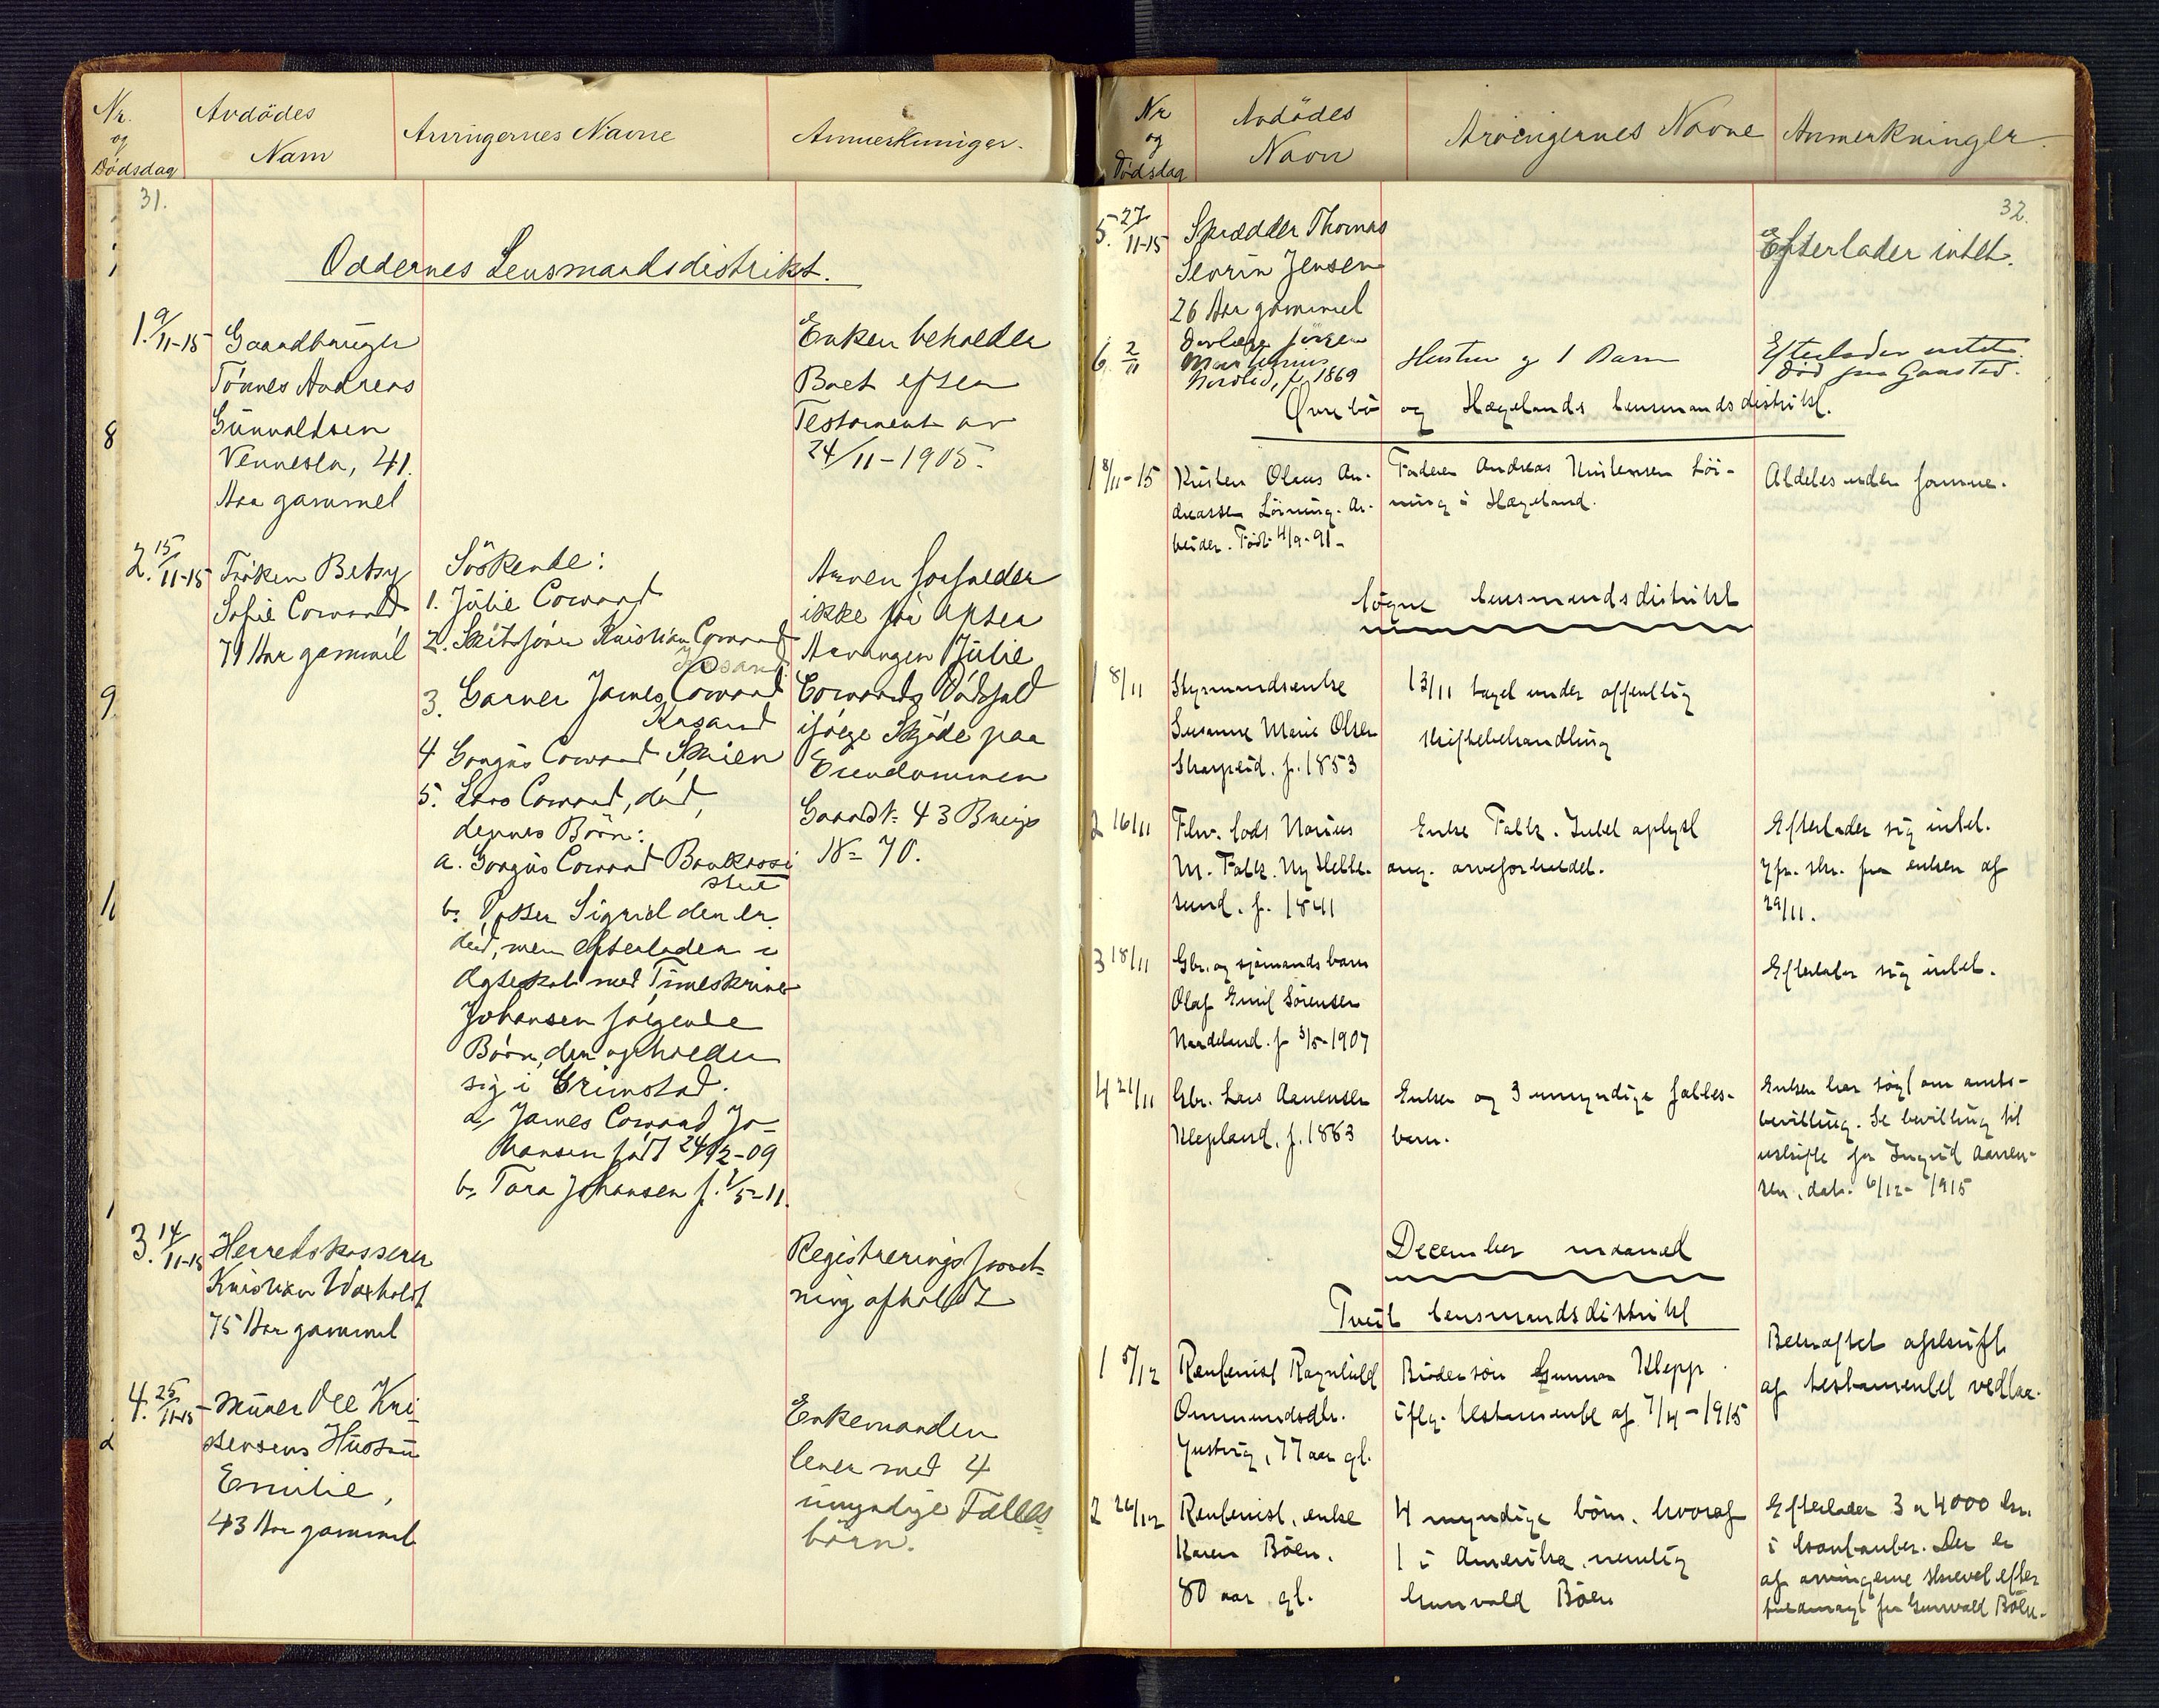 Nr. og Dödsdag
Avdödes Navn
Arvingernes Navne
Anmerkninger.
31.
Oddernes Lensmandsdistrikt.
1. 9/11-15
Gaardbruger
Tönnes Andreas
Gunvaldsen
Vennesla, 41
Aar gammel
Enken beholder
Boet efter
Testament av
24/11-1905.
2. 15/11-15
Fröken Betsy
Sofie Coward
71 Aar gammel
Söskende:
1. Julie Coward
2. Kristian Coward
3. Garver James Coward
Krsand
4 Coward Skien
5. Lars Coward, död,
dennes Börn:
a. Coward
b. Sigrid den er
död, men efterlader i
Ægteskab med
Johansen følgende
Börn, der opholder
sig i Grimstad.
a, James Coward Jo-
hansen född 24/12-09
b, Tora Johansen f. 1/5-11.
Arven forfalder
ikke för efter
Arvingen Julie
Cowards Dödsfald
ifölge Skjöde paa
Eiendommen
Gaards No 43 Brugs
No 70.
3. 14/11-15
Herredskasserer
Kristian
75 Aar gammel
Registreringsforret-
ning afholdt
4. 25/11-15
Murer Ole Kri-
stensens Hustru
Emilie,
43 Aar gammel
Enkemanden
lever med 4
umyndige Fælles-
börn.
Nr og Dödsdag
Avdödes Navn
Arvingernes Navne
Anmerkninger.
32.
5. 27/11-15
Skrædder Thomas
Severin Jensen
26 Aar gammel
Efterlader intet.
6. 2/11
Jörgen
f. 1869
Hustru og 1 Barn
Efterlader intet.
Död paa Gaustad.
Øvrebö og Hægelands lensmandsdistrikt.
1 8/11-15
Kristen Olaus An-
dreassen Löining. Ar-
beider. Födt 4/9-91-
Faderen Andreas Kristensen Löi-
ning i Hægeland.
Aldeles uden formue.
Søgne lensmandsdistrikt
1 8/11
Styrmandsenke
Susanne Marie Olsen
f. 1853
13/11 taget under offentlig
skiftebehandling
2 16/11
Flw. lods Marius
M. Falk. Ny Helle-
sund. f. 1841
Enke Falk. Intet oplyst
ang. arveforholdet.
Efterlader sig intet.
Jfr. skr. fra enken af
29/11.
3 18/11
Gbr. og sjömands barn
Olaf Emil Sörensen
f 3/5-1907
Efterlader sig intet.
4 21/11
Gbr. Lars Aanensen
Klepland. f. 1883
Enken og 3 umyndige fælles-
barn.
Enken har søgt om amts-
bevilling. Se bevilling til
uskifte for Ingrid Aanen-
sen, dat. 6/12-1915
December maaned
Tveit lensmandsdistrikt
1 5/12
Rentenist Ragnhild
Ommundsdtr.
Justvig, 77 aar gl.
Brödersön Gunnar Klepp
iflg. testamente af 7/4-1915
Bekræftet afskrift
af testamentet vedlaa.
2 26/12
Rentenist, enke
Karen Böen.
80 aar gl.
4 myndige börn, hvoraf
1 i Amerika, nemlig
Gunvald Böen
Efterlader 3 a 4000 kr.
i kontanter. Der er
af arvingerne skrevet efter
fuldmagt fra Gunvald Böen.